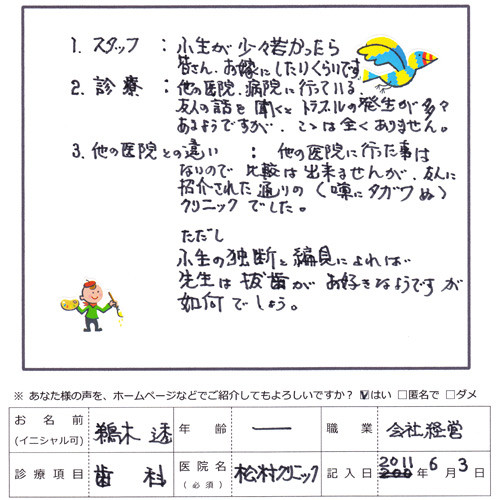 1. スタッフ : 小生が少々若かったら
皆さん、お嫁にしたりくらいです
2. 診療 : 他の医院、病院に行っている、
友人の話を聞くとトラブルの発生が多々
あるようですが、ここは全くありません。
3. 他の医院との違い : 他の医院に行った事は
ないので比較は出来ませんが、友人に
紹介された通りの(噂にタガワぬ)
クリニックでした。
ただし
小生の独断と編見によれば
先生は抜歯がお好きなようですが
如何でしょう。
※ あなた様の声を、ホームページなどでご紹介してもよろしいですか? ☑はい □匿名で □ダメ
お名前 (イニシャル可) 鵜木 透 年齢 — 職業 会社経営
診療項目 歯科 医院名 (必須) 松村クリニック 記入日 2011年6月3日